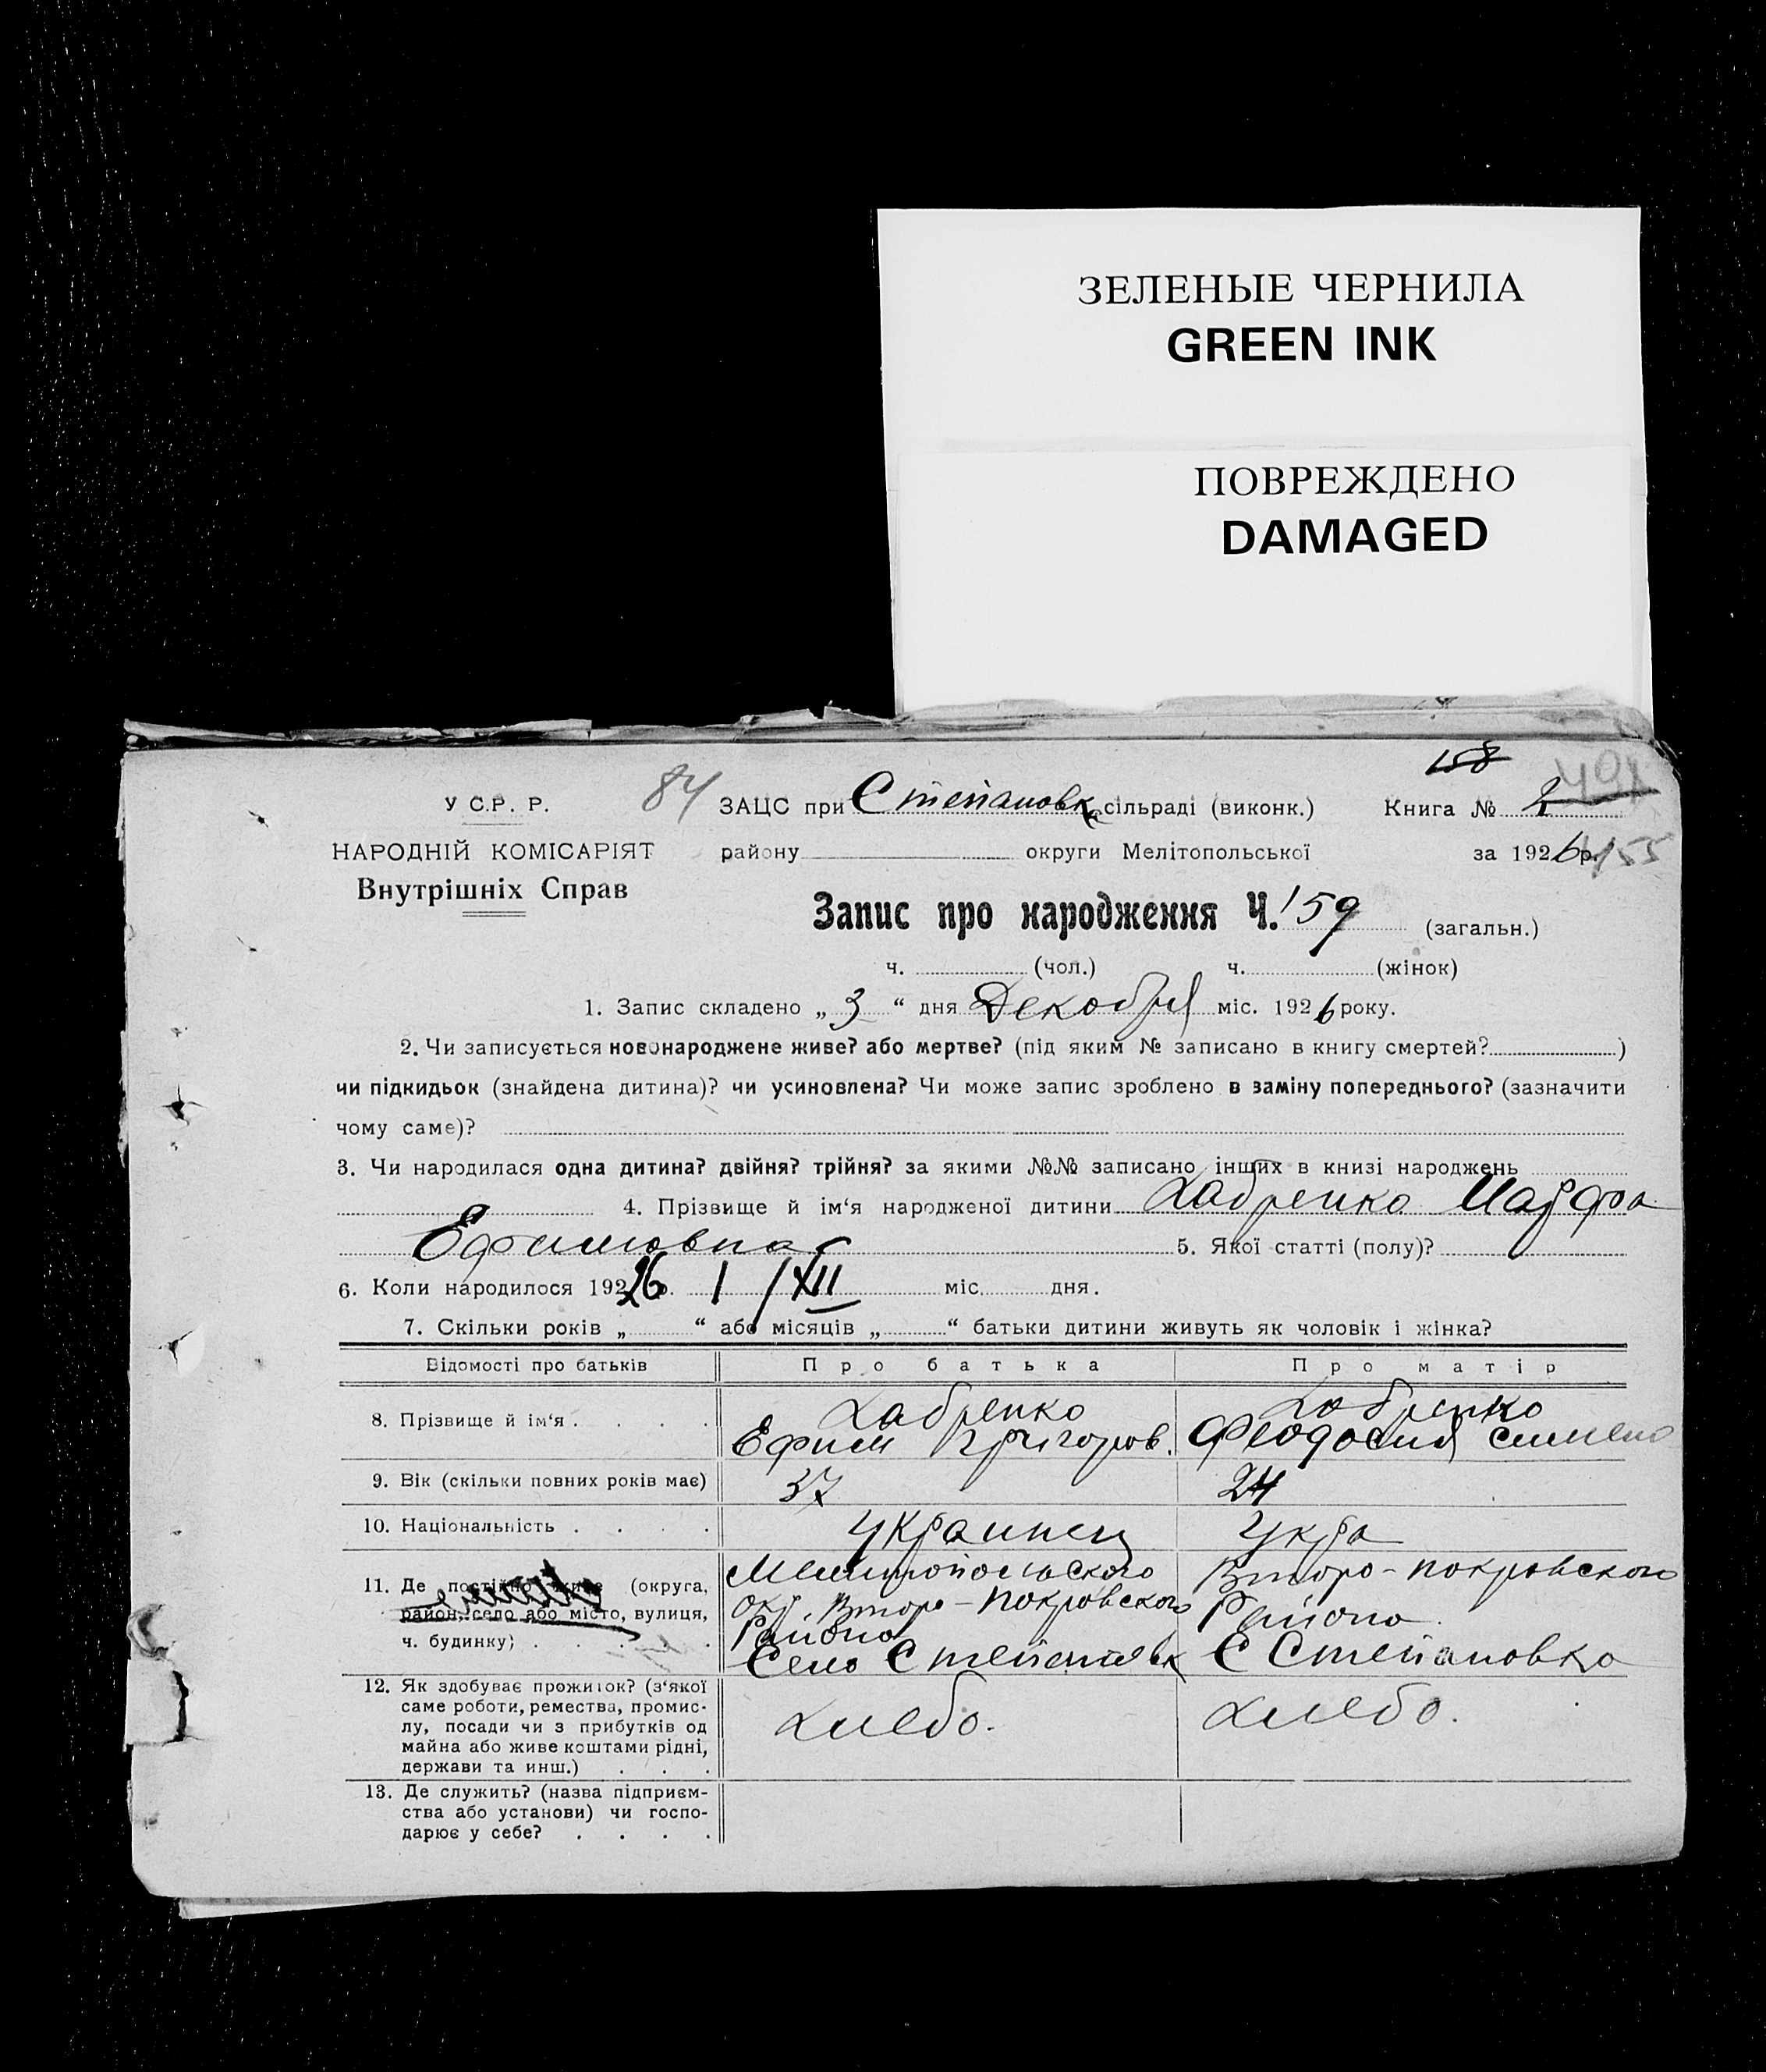 ЗЕЛЕНЫЕ ЧЕРНИЛА
GREEN INK
ПОВРЕЖДЕНО
DAMAGED
158
У С.Р. Р. 84 ЗАЦС при Степановк сільраді (виконк.) Книга № 2
НАРОДНІЙ КОМІСАРІЯТ району округи Мелітопольської за 1926 р. 155
Внутрішніх Справ
Запис про народження Ч. 159 (загальн.)
ч. (чол.) ч. (жінок)
1. Запис складено „ 3 “ дня Декобря міс. 1926 року.
2. Чи записується новонароджене живе? або мертве? (під яким № записано в книгу смертей? )
чи підкидьок (знайдена дитина)? чи усиновлена? Чи може запис зроблено в заміну попереднього? (зазначити
чому саме)?
3. Чи народилася одна дитина? двійня? трійня? за якими №№ записано інших в книзі народжень
4. Прізвище й ім‘я народженої дитини Хабренко Марфа
Ефимовна 5. Якої статті (полу)?
6. Коли народилося 1926 р. 1 / XII міс. дня.
7. Скільки років „ “ або місяців „ “ батьки дитини живуть як чоловік і жінка?
Відомості про батьків Про батька Про матір
8. Прізвище й ім‘я . . . . Хабренко Хабренко
Ефим Григоров. Феодосия семено
9. Вік (скільки повних років має) 37 24
10. Національність . . . . Украинец Укра
11. Де постійно живе (округа, Мелитопольского Второ-покровского
район, село або місто, вулиця, окр. Второ-покровского Района
ч. будинку) . . . . . Района
Село Степановк С Степановка
12. Як здобуває прожиток? (з‘якої
саме роботи, ремества, промис-
лу, посади чи з прибутків од хлебо. хлебо.
майна або живе коштами рідні,
держави та инш.) . . .
13. Де служить? (назва підприєм-
ства або установи) чи госпо-
дарює у себе? . . . .